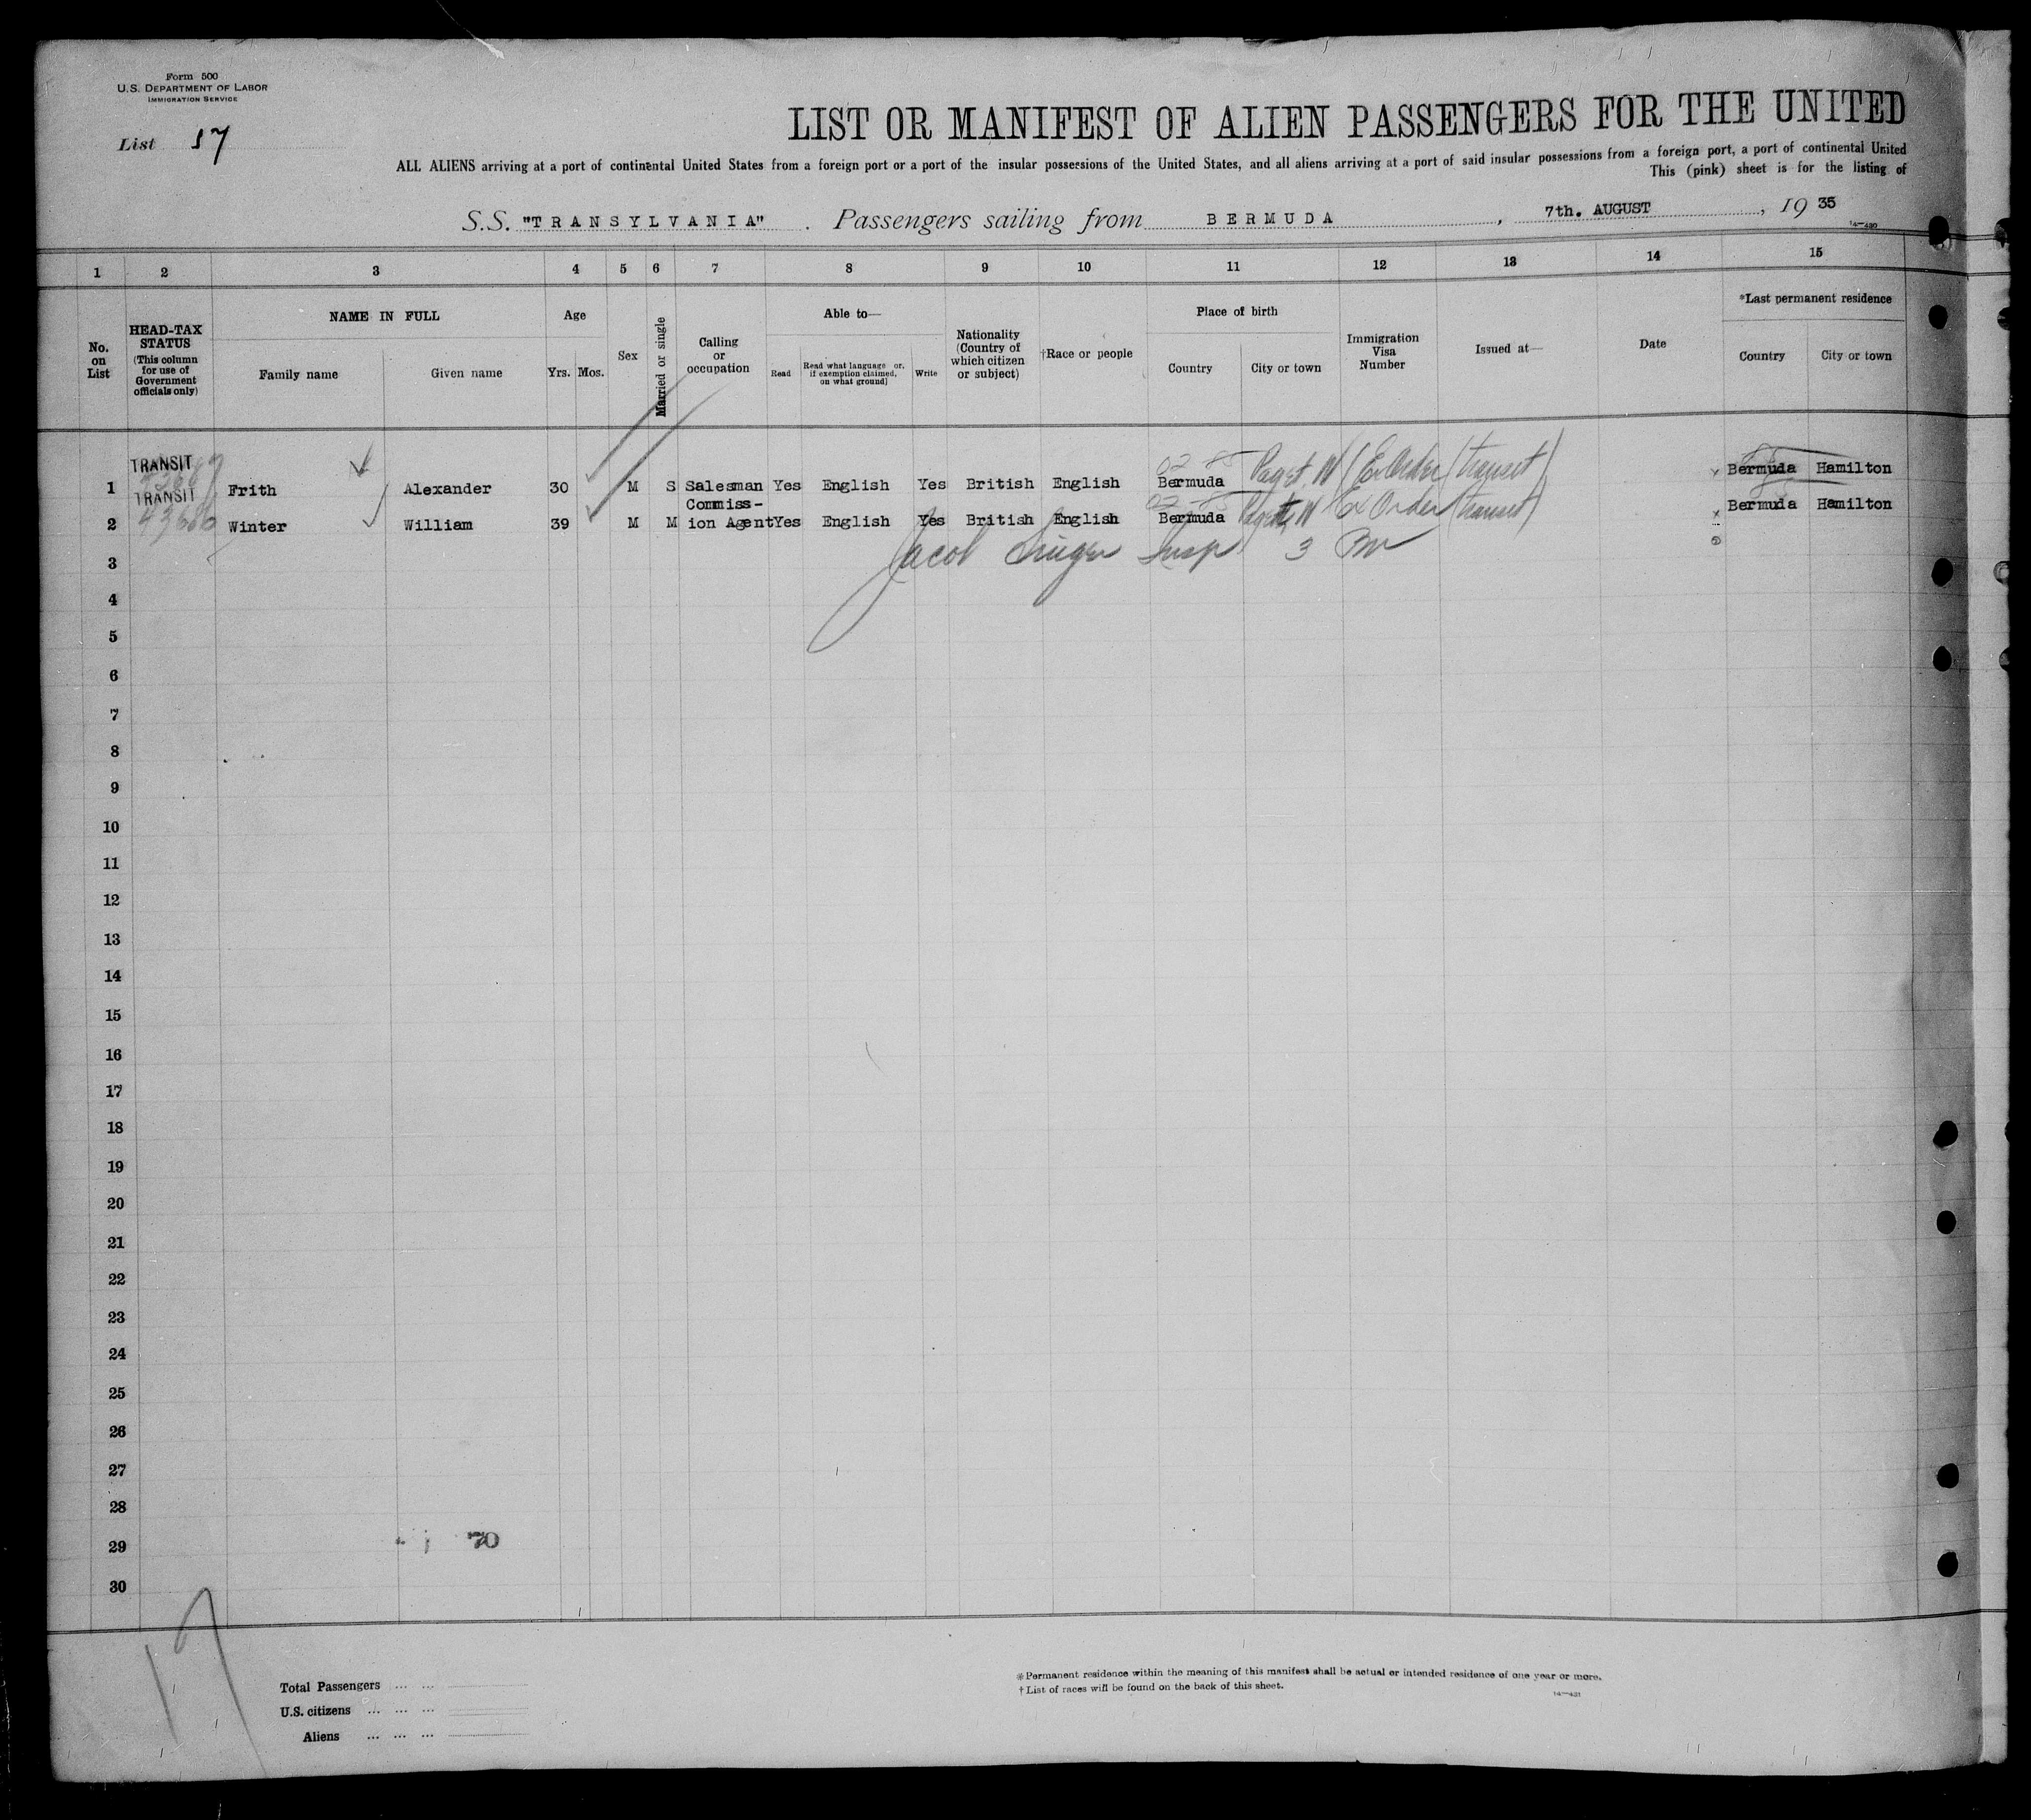 Form 500
U.S. DEPARTMENT OF LABOR
IMMIGRATION SERVICE
List 17
LIST OR MANIFEST OF ALIEN PASSENGERS FOR THE UNITED
ALL ALIENS arriving at a port of continental United States from a foreign port or a port of the insular possessions of the United States, and all aliens arriving at a port of said insular possessions from a foreign port, a port of continental United
This (pink) sheet is for the listing of
S.S. "TRANSYLVANIA" . Passengers sailing from BERMUDA , 7th. AUGUST , 19 35
1 2 3 4 5 6 7 8 9 10 11 12 13 14 15
No. on List
HEAD-TAX STATUS (This column for use of Government officials only)
NAME IN FULL
Family name
Given name
Age
Yrs. Mos.
Sex
Married or single
Calling or occupation
Able to—
Read
Read what language or, if exemption claimed, on what ground)
Write
Nationality (Country of which citizen or subject)
†Race or people
Place of birth
Country
City or town
Immigration Visa Number
Issued at—
Date
*Last permanent residence
Country
City or town
TRANSIT
1 Frith Alexander 30 M S Salesman Yes English Yes British English Bermuda Paget W (Ex Order (transit) Bermuda Hamilton
TRANSIT
2 Winter William 39 M M Commiss-ion Agent Yes English Yes British English Bermuda Paget W Ex Order (transit) Bermuda Hamilton
Jacob Insp 3
3
4
5
6
7
8
9
10
11
12
13
14
15
16
17
18
19
20
21
22
23
24
25
26
27
28
29 70
30
17
Total Passengers ... ...
U.S. citizens ... ... ...
Aliens ... ... ...
* Permanent residence within the meaning of this manifest shall be actual or intended residence of one year or more.
† List of races will be found on the back of this sheet.